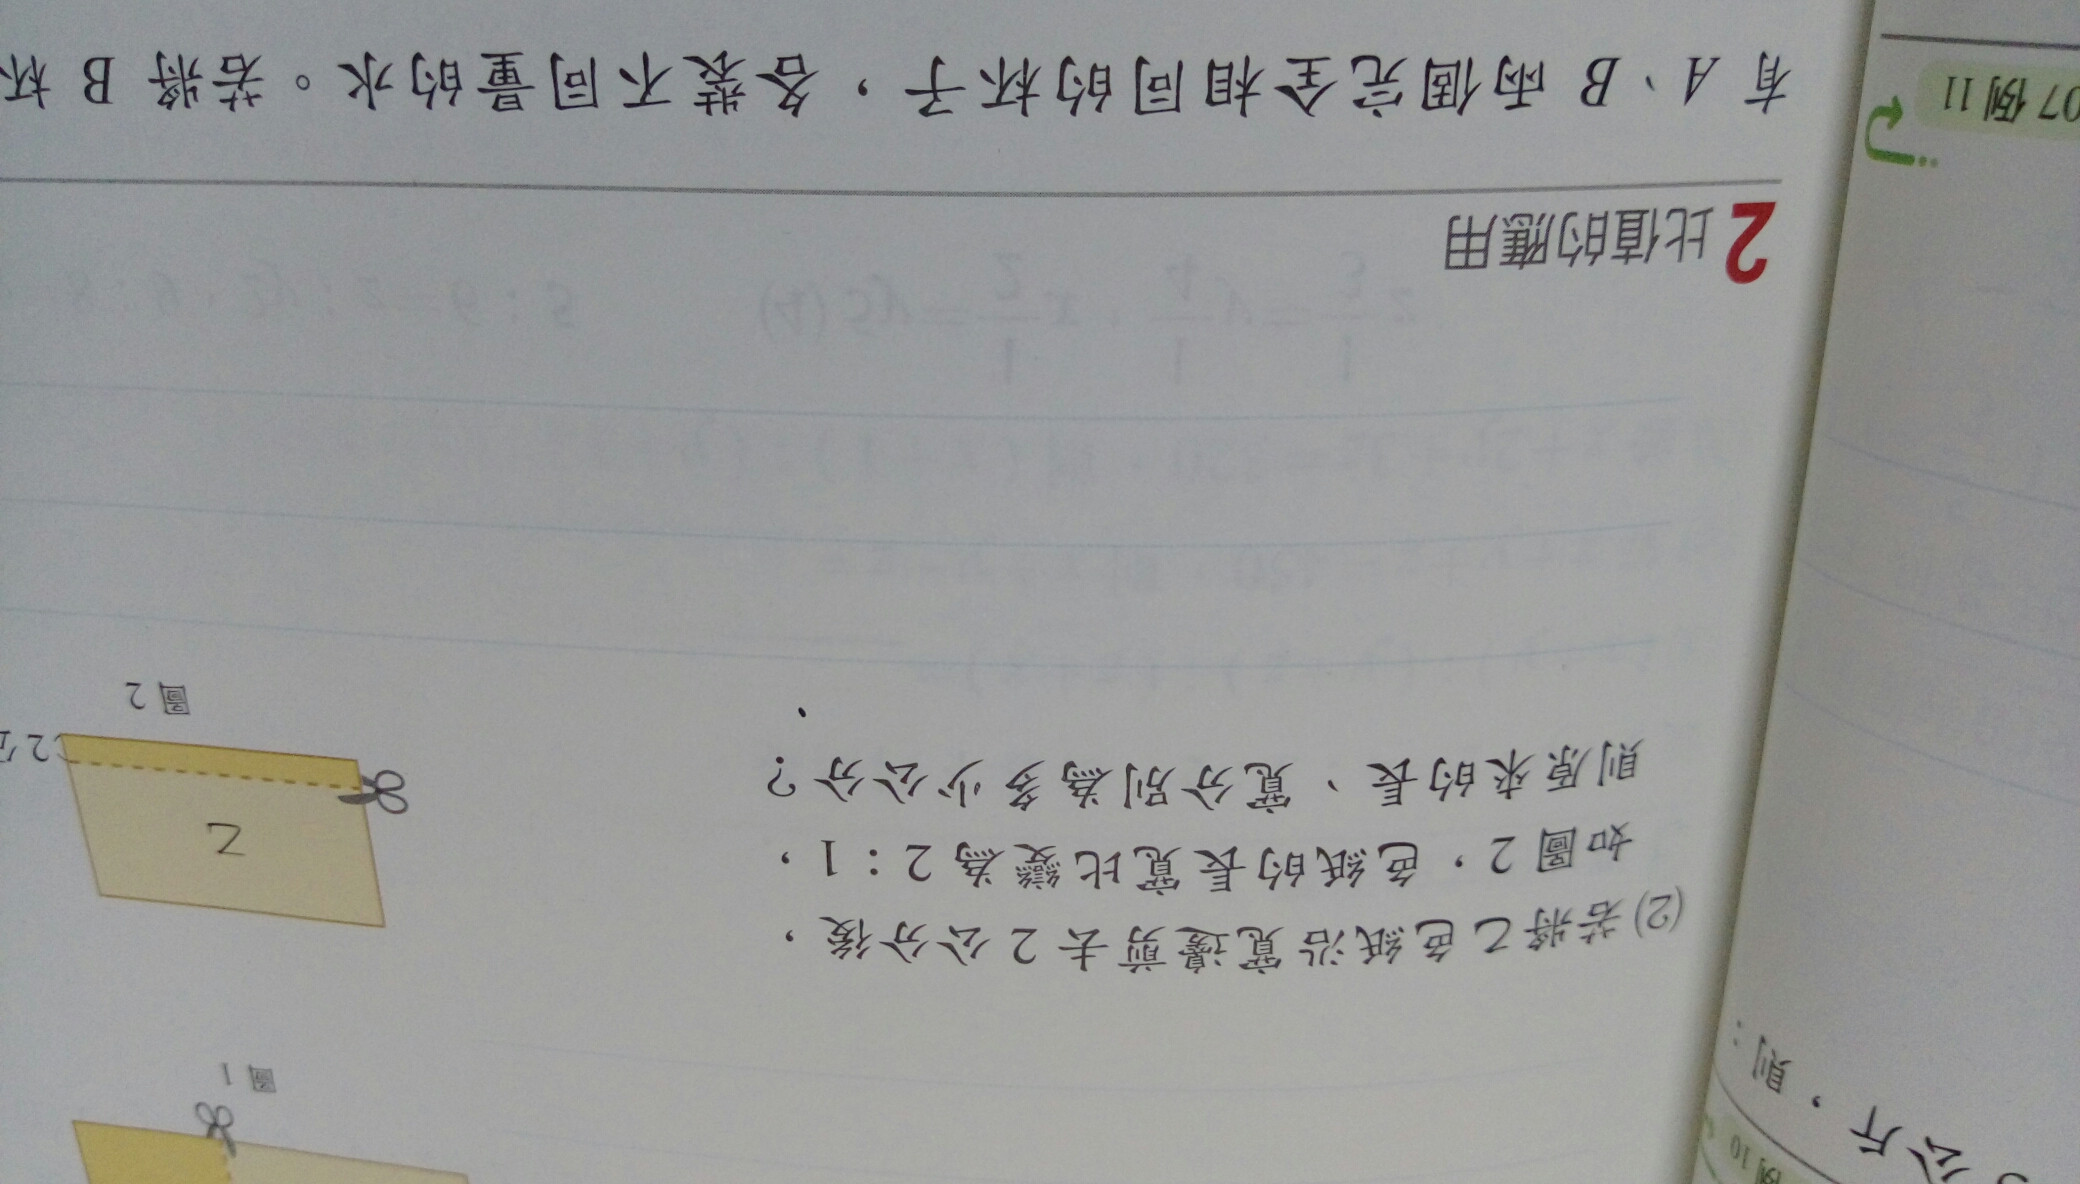 公斤，則：
例 10
圖 1
(2) 若將乙色紙沿寬邊剪去 2 公分後，
如圖 2，色紙的長寬比變為 2：1，
則原來的長、寬分別為多少公分？
乙
2 公
圖 2
2 比值的應用
07 例 11
有 A、B 兩個完全相同的杯子，各裝不同量的水。若將 B 杯